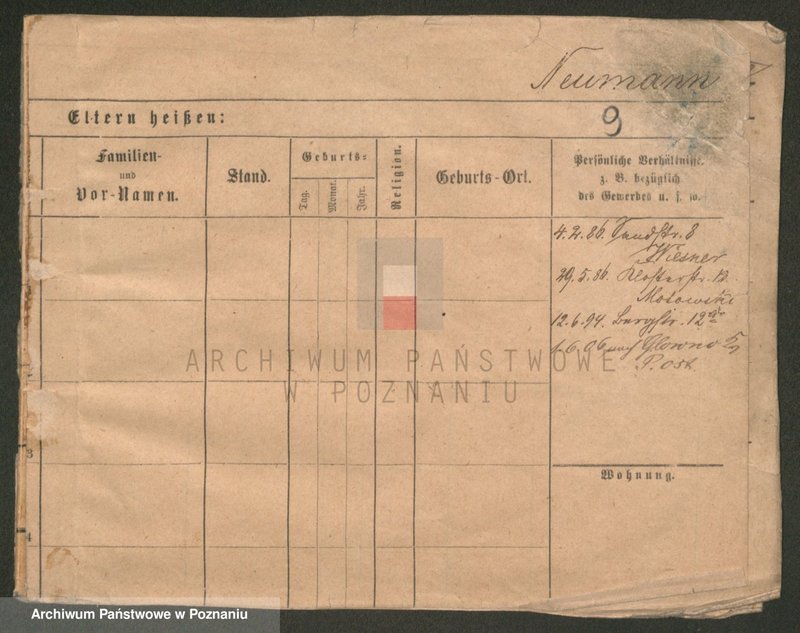 Neumann
9
Eltern heißen:
Familien-
und
Vor-Namen.
Stand.
Geburts-
Tag.
Monat.
Jahr.
Religion.
Geburts-Ort.
Persönliche Verhältnisse
z. B. bezüglich
des Gewerbes u. s. w.
4.2.86. Sandstr. 8
Wiesner
29.5.86. Klosterstr. 13.
12.6.94. Bergstr. 12
6.06 nach Glowno
P. Ost.
3
4
Wohnung.
ARCHIWUM PAŃSTWOWE
W POZNANIU
Archiwum Państwowe w Poznaniu